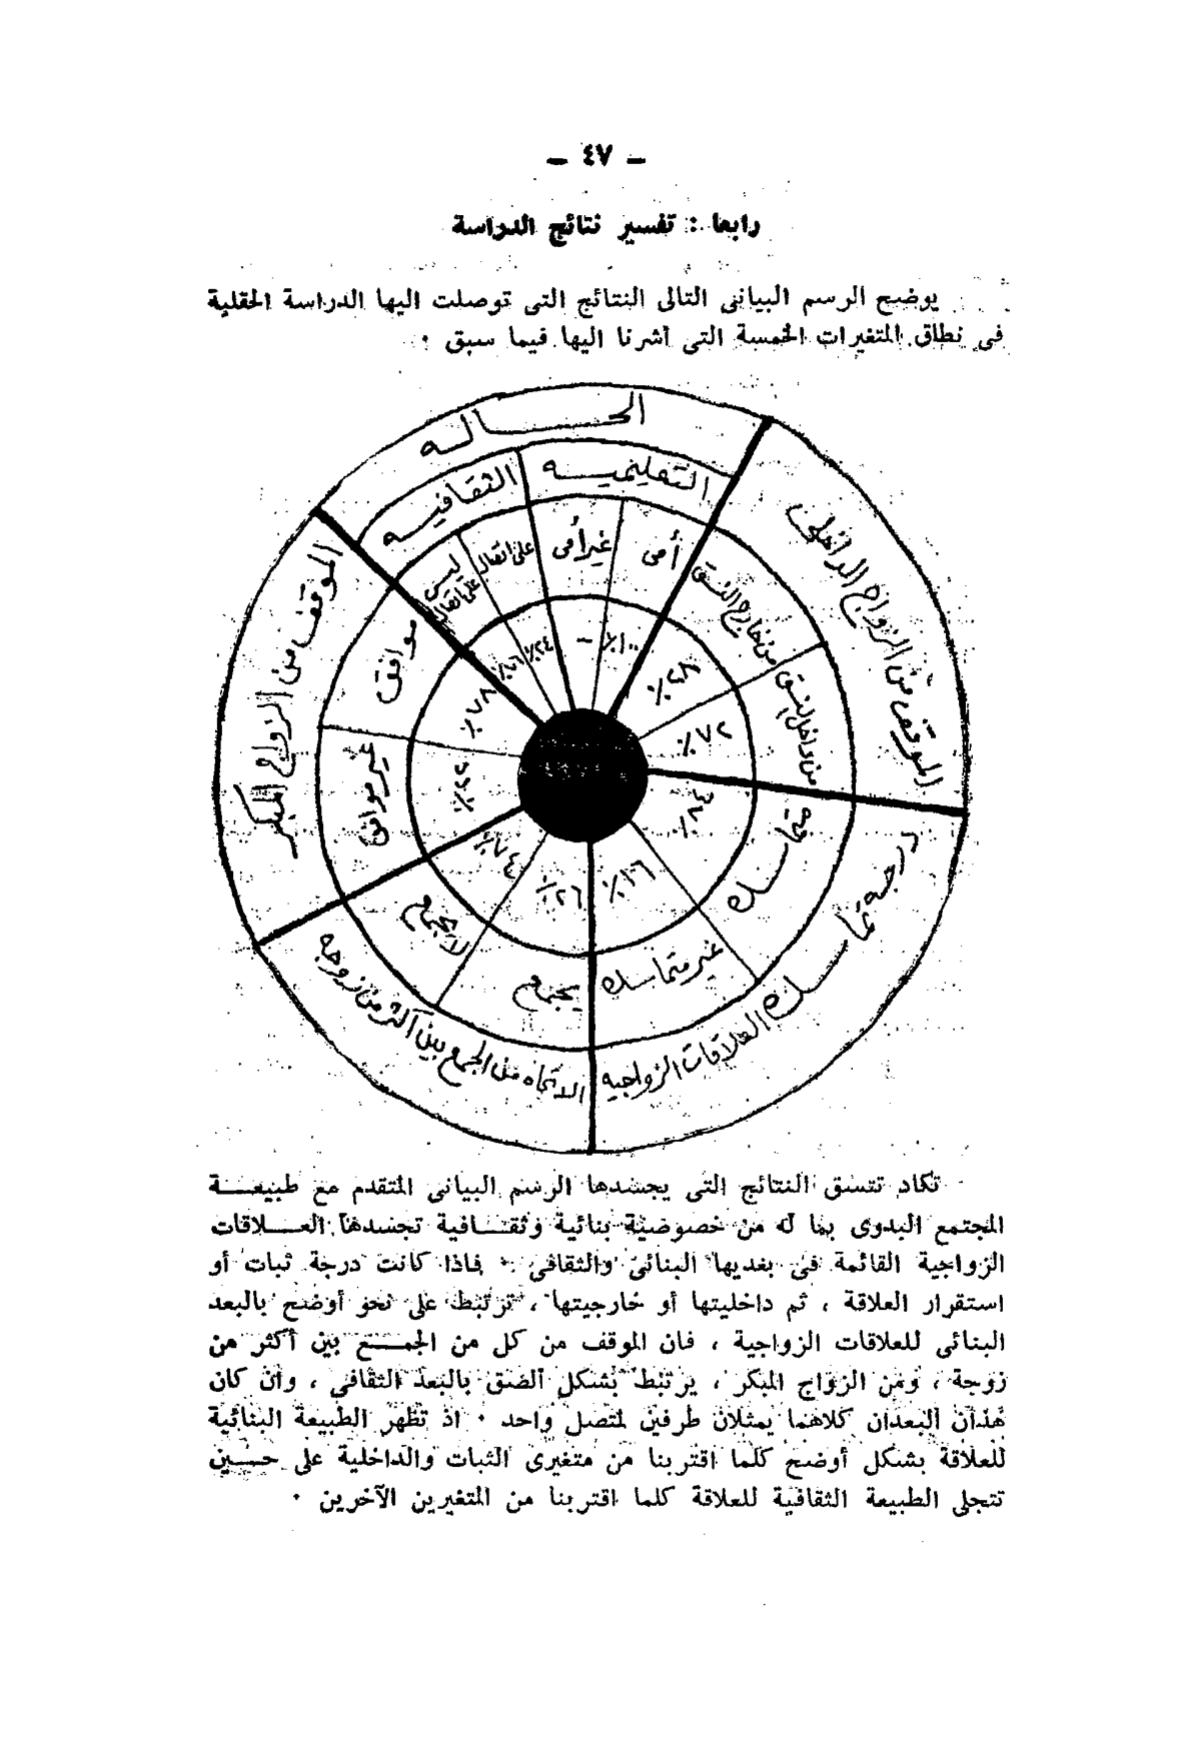 – ٤٧ –
رابعا : تفسير نتائج الدراسة
يوضح الرسم البيانى التالى النتائج التى توصلت اليها الدراسة الحقلية
فى نطاق المتغيرات الخمسة التى أشرنا اليها فيما سبق ٠
الحـــــالـه
التعليميـــه
الثقافيـــه
أمى
غير أمى
على اتصال
ليس على اتصال
٪١٠٠
–
٪٢٤
٪٧٦
الموقف من الزواج الداخلى
من خارج النسق
من داخل النسق
٪٢٨
٪٧٢
درجة تماسـك العلاقات الزواجيه
متماسـك
غير متماسك
٪٨٤
٪١٦
الاتجاه من الجمع بين أكثر من زوجه
يجمع
لا يجمع
٪٢٦
٪٧٤
الموقف من الزواج المبكر
غير موافق
موافق
٪٢٢
٪٧٨
تكاد تتسق النتائج التى يجسدها الرسم البيانى المتقدم مع طبيعـــة
المجتمع البدوى بما له من خصوصية بنائية وثقـــافية تجسدها العـــلاقات
الزواجية القائمة فى بعديها البنائى والثقافى ٠ فاذا كانت درجة ثبات أو
استقرار العلاقة ، ثم داخليتها أو خارجيتها ، ترتبط على نحو أوضح بالبعد
البنائى للعلاقات الزواجية ، فان الموقف من كل من الجمـــع بين أكثر من
زوجة ، ومن الزواج المبكر ، يرتبط بشكل ألصق بالبعد الثقافى ، وان كان
هذان البعدان كلاهما يمثلان طرفين لمتصل واحد ٠ اذ تظهر الطبيعة البنائية
للعلاقة بشكل أوضح كلما اقتربنا من متغيرى الثبات والداخلية على حـــين
تتجلى الطبيعة الثقافية للعلاقة كلما اقتربنا من المتغيرين الآخرين ٠